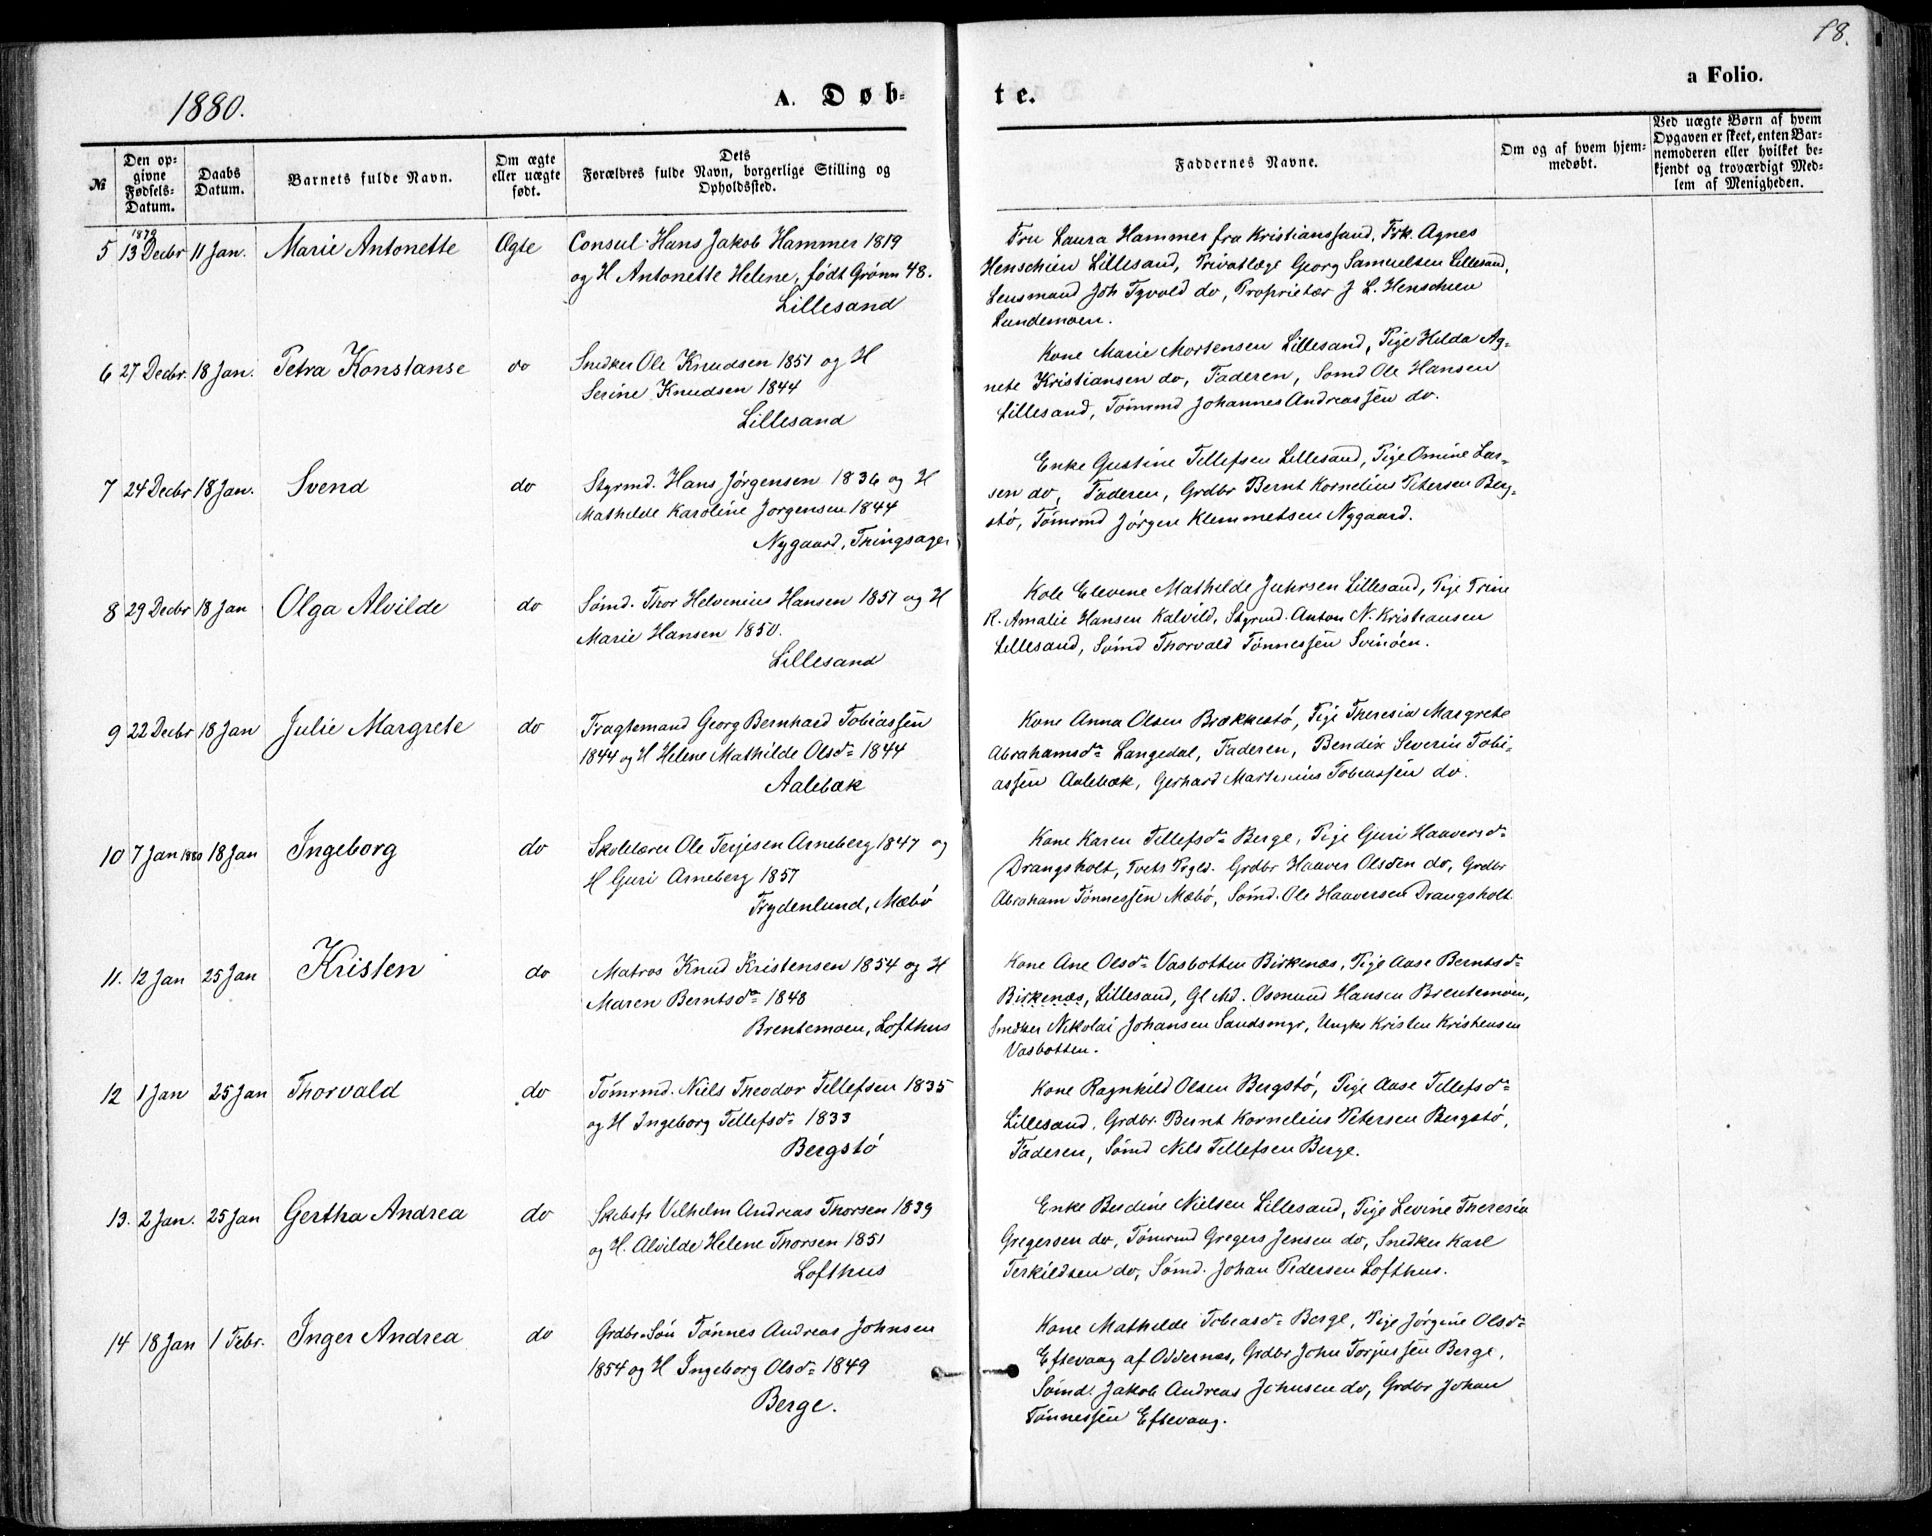 1880.
A. Døb-
te.
a Folio.
18.
№
Den op-
givne
Fødsels-
Datum.
Daabs
Datum.
Barnets fulde Navn.
Om ægte
eller uægte
født.
Dets
Forældres fulde Navn, borgerlige Stilling og
Opholdssted.
Faddernes Navne.
Om og af hvem hjem-
medøbt.
Ved uægte Børn af hvem
Opgaven er skeet, enten Bar-
nemoderen eller hvilket be-
kjendt og troværdigt Med-
lem af Menigheden.
1879
5 13 Decbr 11 Jan. Marie Antonette Ægte Consul Hans Jakob Hammer 1819
og H Antonette Helene, født Grønn 48.
Lillesand
Fru Laura Hammer fra Kristianssand, Frk. Agnes
Henschien Lillesand, Privatlæge Georg Samuelsen Lillesand,
Lensmand Joh Tyvold do, Proprietær J L. Henschien
Lundemoen.
6 27 Decbr. 18 Jan. Petra Konstanse do Snedker Ole Knudsen 1851 og H
Serine Knudsen 1844
Lillesand
Kone Marie Mortensen Lillesand, Pige Hilda Ag-
nete Kristiansen do, Faderen, Sømd Ole Hansen
Lillesand, Tømrmd Johannes Andreassen do.
7 24 Decbr 18 Jan. Svend do Styrmd. Hans Jørgensen 1836 og H
Mathilde Karoline Jørgensen 1844
Nygaard, Thingsager
Enke Gustine Tellefsen Lillesand, Pige Omine Lar-
sen do, Faderen, Grdbr Bernt Kornelius Petersen Berg-
stø, Tømrmd Jørgen Klemmetsen Nygaard.
8 29 Decbr 18 Jan Olga Alvilde do Sømd. Thor Helvenius Hansen 1857 og H
Marie Hansen 1850.
Lillesand
Kole Elevene Mathilde Juhrsen Lillesand, Pige Trine
R. Amalie Hansen Kalvild, Styrmd. Anton N. Kristiansen
Lillesand, Sømd Thorvald Tønnessen Svinøen.
9 22 Decbr 18 Jan Julie Margrete do Fragtemand Georg Bernhard Tobiassen
1844 og H Helene Mathilde Olsdr 1844
Aalebæk
Kone Anna Olsen Brækkestø, Pige Theresia Margrete
Abrahamsdr Langedal, Faderen, Bendix Severin Tobi-
assen Aalebæk, Gerhard Martinius Tobiassen do.
10 7 Jan 1880 18 Jan Ingeborg do Skolelærer Ole Terjesen Arneberg 1847 og
H Guri Arneberg 1857
Frydenlund, Mæbø
Kone Karen Tellefsdr Berge, Pige Guri Haaversdr
Drangsholt, Tvets Prgld. Grdbr Haaver Olsøen do, Grdbr
Abraham Tønnessen Mæbø, Sømd. Ole Haaversen Drangsholt.
11. 12 Jan 25 Jan Kristen do Matros Knud Kristensen 1854 og H
Maren Berntsdr 1848
Brentemoen, Lofthus
Kone Ane Olsdr Vasbotten Birkenæs, Pige Aase Berntsdr
Birkenæs, Lillesand, Gl Md. Osmund Hansen Brentemoen,
Snedker Nikolai Johansen Sandsmyr, Ungkr Kristen Kristensen
Vasbotten.
12 1 Jan 25 Jan Thorvald do Tømrmd. Niels Theodor Tellefsen 1835
og H Ingeborg Tellefsdr 1833
Bergstø
Kone Ragnhild Olsen Bergstø, Pige Aase Tellefsdr
Lillesand, Grdbr. Bernt Kornelius Petersen Bergstø,
Faderen, Sømd Nils Tellefsen Berge.
13. 2 Jan. 25 Jan Gertha Andrea do Skibsfr Vilhelm Andreas Thorsen 1839
og H. Alvilde Helene Thorsen 1851
Lofthus
Enke Berdine Nielsen Lillesand, Pige Levine Theresia
Gregersen do, Tømrmd Gregers Jensen do, Snedker Karl
Terkildsen do, Sømd. Johan Pedersen Lofthus.
14 18 Jan 1 Febr. Inger Andrea do Grdbr.-Søn Tønnes Andreas Johnsen
1854 og H Ingeborg Olsdr 1849
Berge.
Kone Mathilde Tobiasdr Berge, Pige Jørgine Olsdr
Eftevaag af Oddernes, Grdbr John Torjussen Berge,
Sømd. Jakob Andreas Johnsen do, Grdbr Johan
Tønnessen Eftevaag.